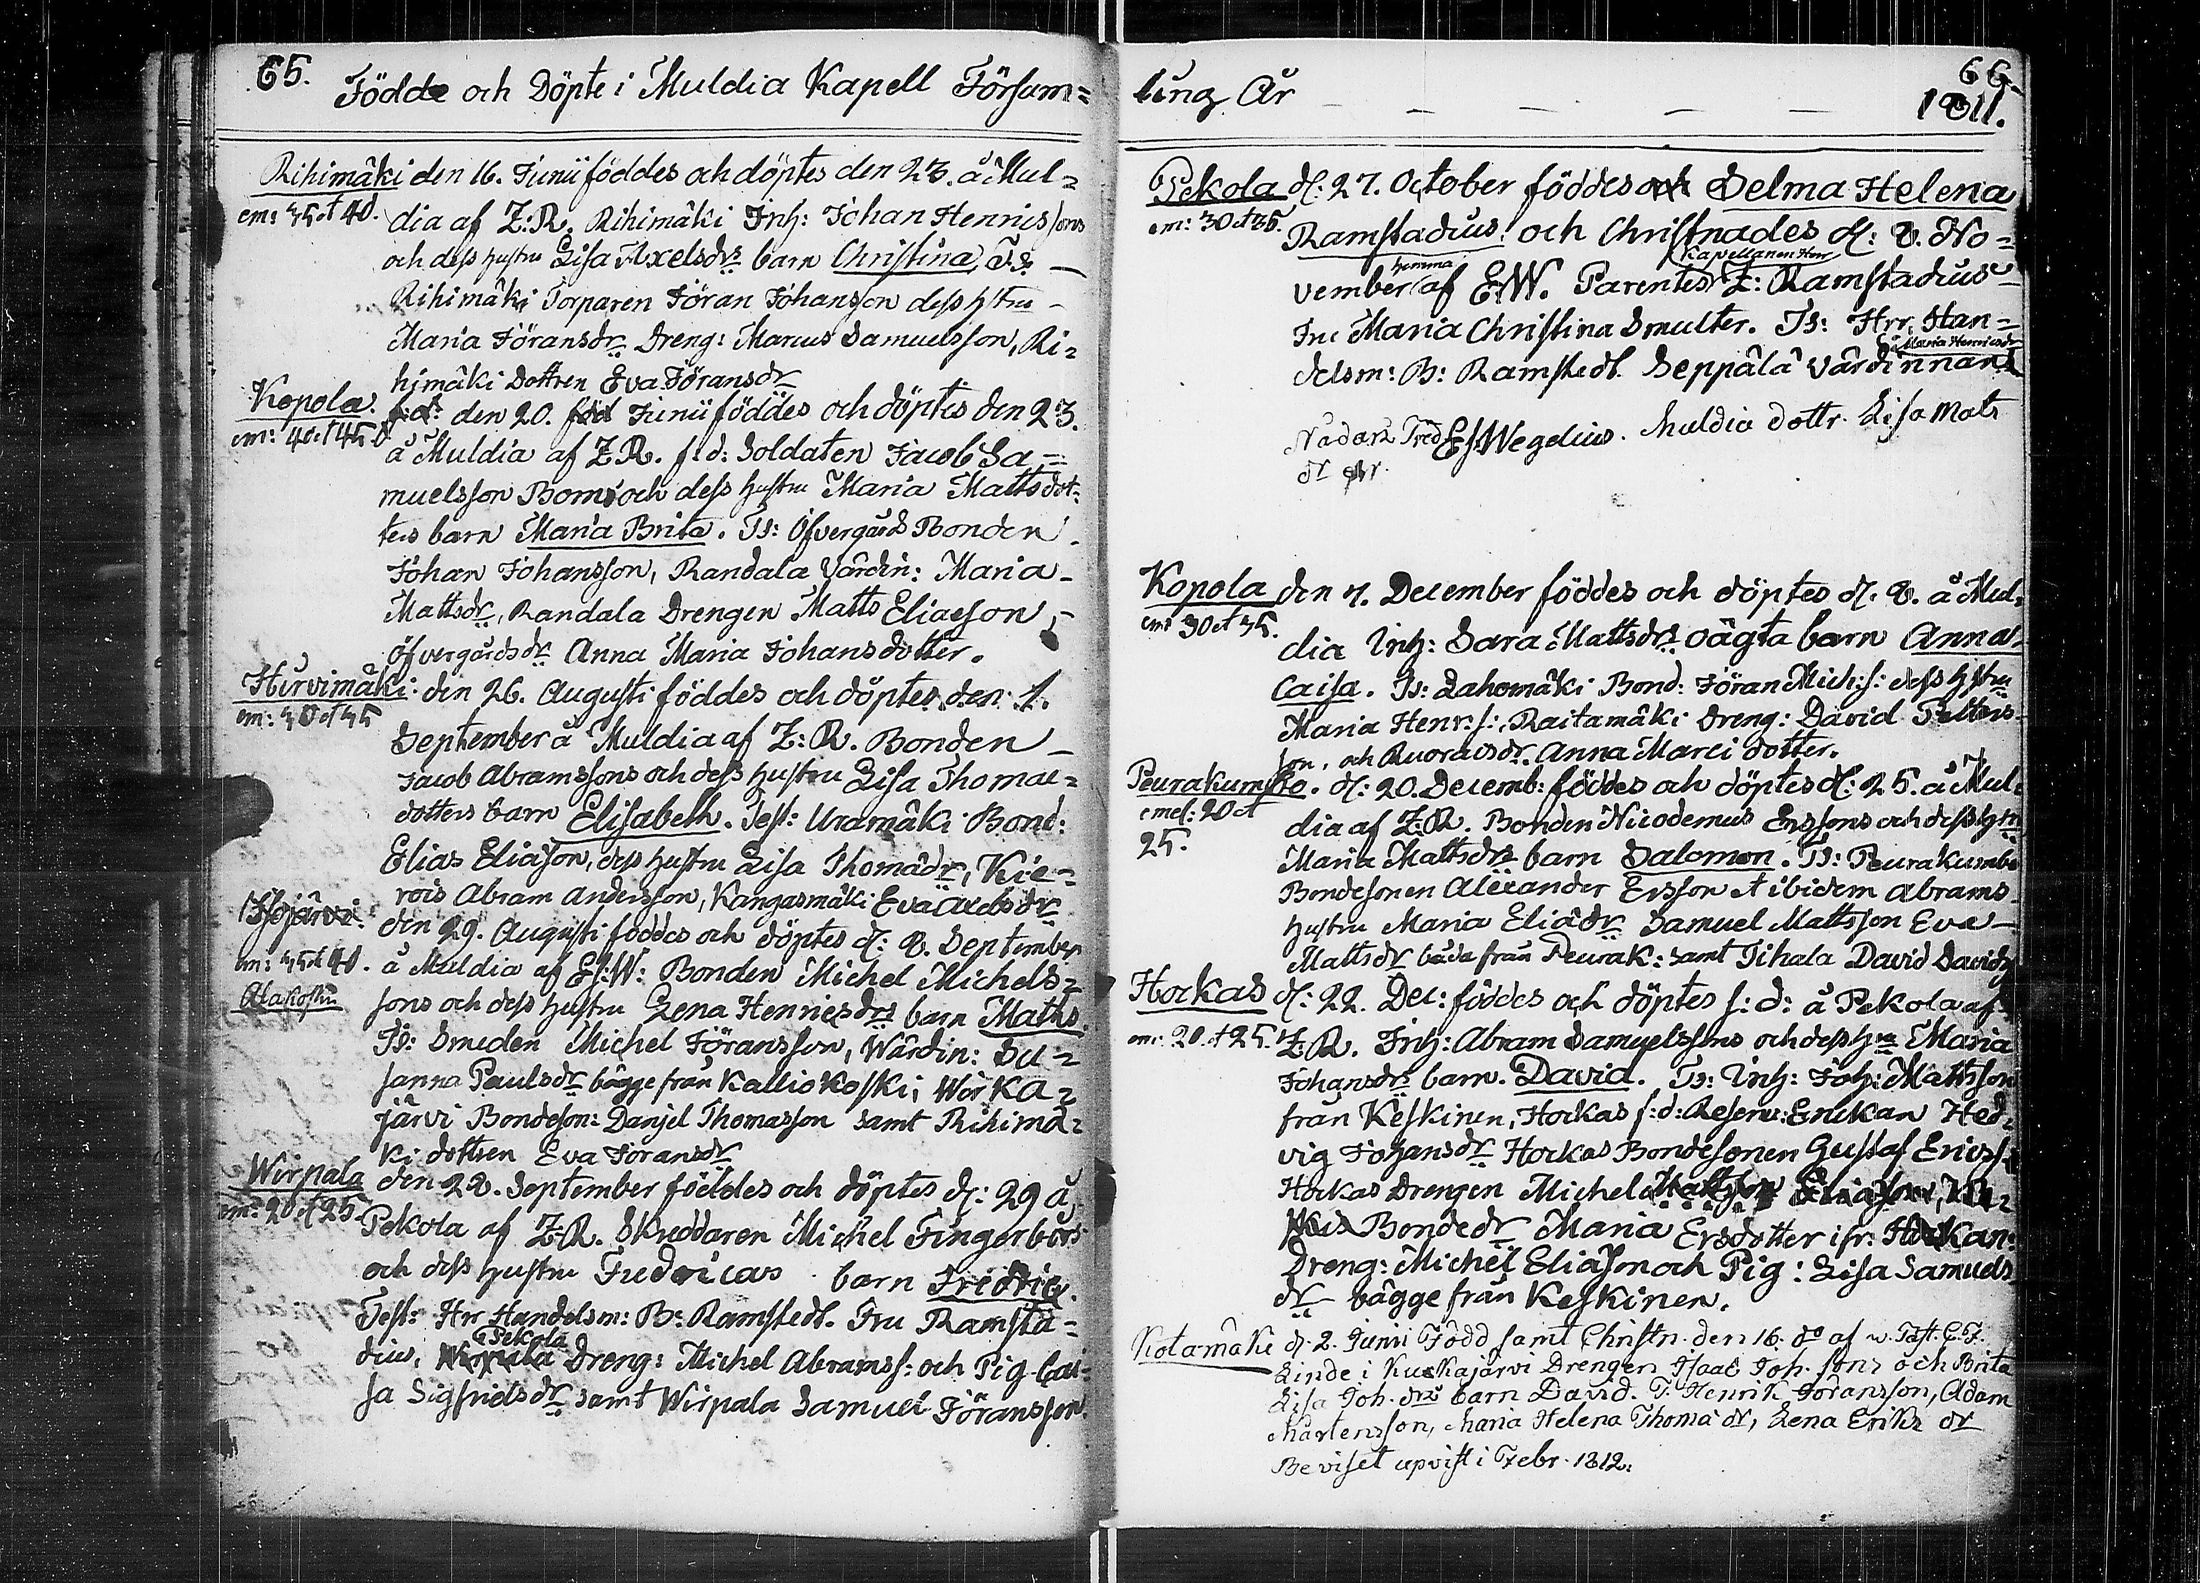 65.
Födde och Döpte i Muldia Kapell Försam=
Rihimäki den 16. Junii föddes och döptes den 23. å Mul=
em: 35 et 40. dia af Z:R. Rihimäki Inh: Johan Henricssons
och dess hustru Lisa Axelsdrs barn Christina, Ts.
Rihimäki Torparen Jöran Johansson dess hstru
Maria Jöransdr Dreng: Marcus Samuelsson, Ri=
himäki Dottren Eva Jöransdr
Kopola. den 20. Junii föddes och döptes den 23.
em: 40 et 45
å Muldia af Z.R. f.d: Soldaten Jacob Sa=
muelsson Boms och dess hustru Maria Mattsdot=
ters barn Maria Brita. Ts: Öfvergårds Bonden
Johan Johansson, Randala Värdin: Maria
Mattsdr, Randala Drengen Matts Eliaeson,
Öfvergårdsdr Anna Maria Johansdotter.
Hirvimäki den 26. Augusti föddes och döptes den 1.
em: 30 et 35
September å Muldia af Z:R. Bonden
Jacob Abramssons och dess hustru Lisa Thomae=
dotters barn Elisabeth. Test: Uramäki Bond:
Elias Eliäson, dess hustru Lisa Thomädr, Kie=
rois Abram Andersson, Kangasmäki Eva Axelsdr
Isojärvi den 29. Augusti föddes och döptes d: 8. September
em: 35 et 40. å Muldia af Es:W: Bonden Michel Michels=
Alakoski sons och dess hustru Lena Henricsdrs barn Matts
Ts: Smeden Michel Jöransson, Wärdin: Su=
sanna Paulsdr bägge från Kalliokoski, Wirka=
järvi Bondeson: Danjel Thomasson samt Rihimä=
ki dottren Eva Jöransdr
Wirpala den 28. September föddes och döptes d: 29 å
em: 20 et 25. Pekola af Z.R. Skreddaren Michel Fingerbörs
och dess hustru Fredricas barn Fredric.
Test: Hrr Handelsm: B: Ramstedt. Fru Ramsta=
Pekola
dius, Dreng: Michel Abramss: och Pig Cai=
sa Sigfridsdr samt Wirpala Samuel Jöransson.
66.
ling År 1811.
Pekola d: 27. October föddes Selma Helena
em: 30 et 35. Ramstadius och Christnades d: 8. No=
hemma Kapellanen Herr
vember af E.W. Parentes Z: Ramstadius
Fru Maria Christina Smulter. Ts: Hrr Han=
Maria Henricsdr
delsm: B: Ramstedt. Seppälä Värdinnan
Es Wegelius. Muldia dottr. Lisa Mats
dr
Kopola den 7. December föddes och döptes d. 8. å Mul=
em: 30 et 35.
dia Inh: Sara Mattsdrs oägta barn Anna
Caisa. Ts: Lahomäki Bond: Jöran Mich:s: dess hstru
Maria Henr:s:, Raitamäki Dreng: David Petters=
son, och Ruoraisdr Anna Marci dotter.
Peurakumbo. d: 20. Decemb: föddes och döptes d: 25. å Mul=
emel: 20 et
25.
dia af Z:R. Bonden Nicodemus Erssons och dess hstru
Maria Mattsdrs barn Salomon. Ts: Peurakumbo
Bondesonen Alexander Ersson et ibidem Abrams
hustru Maria Eliädr Samuel Mattsson Eva
Mattsdr båda från Peurak: samt Tihala David Davids
Horkas d: 22. Dec: föddes och döptes s: d: å Pekola af
em: 20 et 25. Z.R. Inh: Abram Samuelssons och dess hu Maria
Johansdrs barn. David. Ts: Inh: Joh: Mattsson
från Keskinen, Horkas f:d: Reserv: Enckan Hed=
vig Johansdr Horkas Bondesonen Gustaf Ericss.
Horkas Drengen Michel
Bondedr Maria Ersdotter ifr:
Dreng: Michel Eliäson och Pig: Lisa Samuels
dr bägge från Keskinen.
Kotamäki d. 2. Junii Född samt Christn. den 16. do af v. Past. C.F.
Linde i Kuckajärvi Drengen Isaac Joh. sons och Brita
Lisa Joh. drs barn David. T: Henrik Jöransson, Adam
Mårtensson, Maria Helena Thomä dr, Lena Eriks dr
Beviset upvist i Febr. 1812.